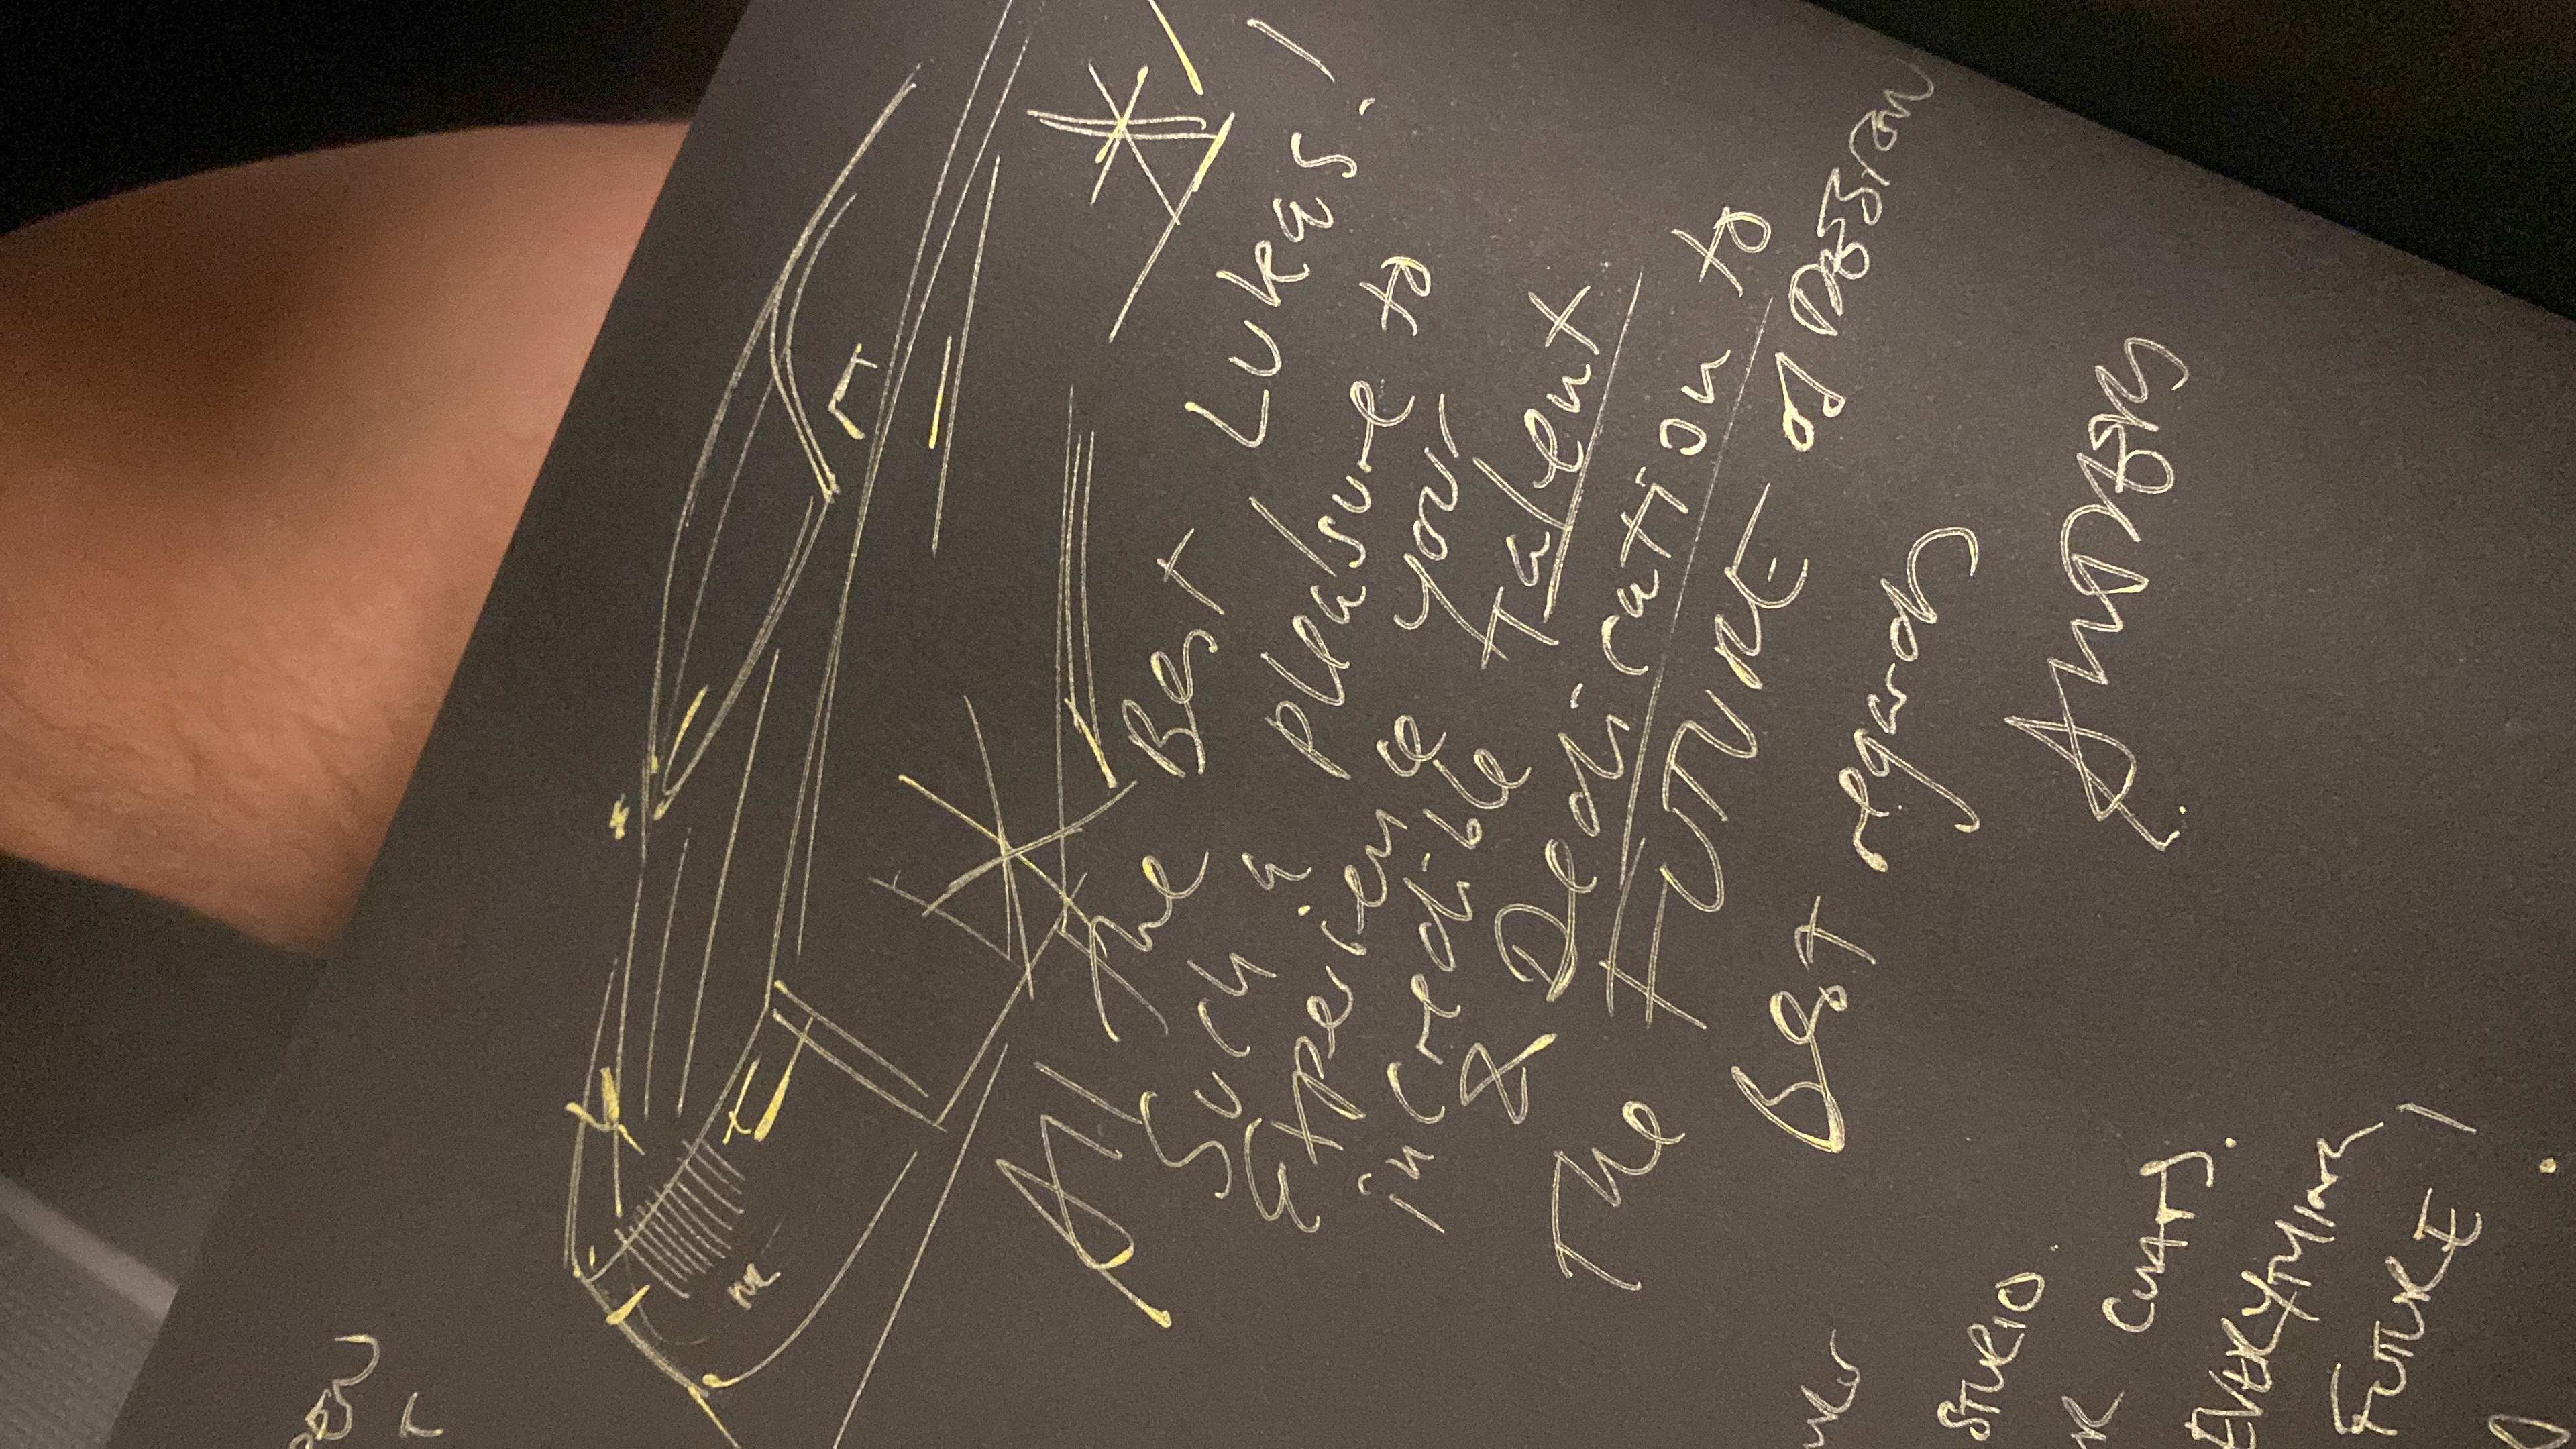 All the Best Lukas!
Such a pleasure to
Experience your
incredible Talent
& Dedication to
The FUTURE of DESIGN
Best regards
ANDERS
STUDIO.
CHATS.
EVERYTHING
FUTURE!